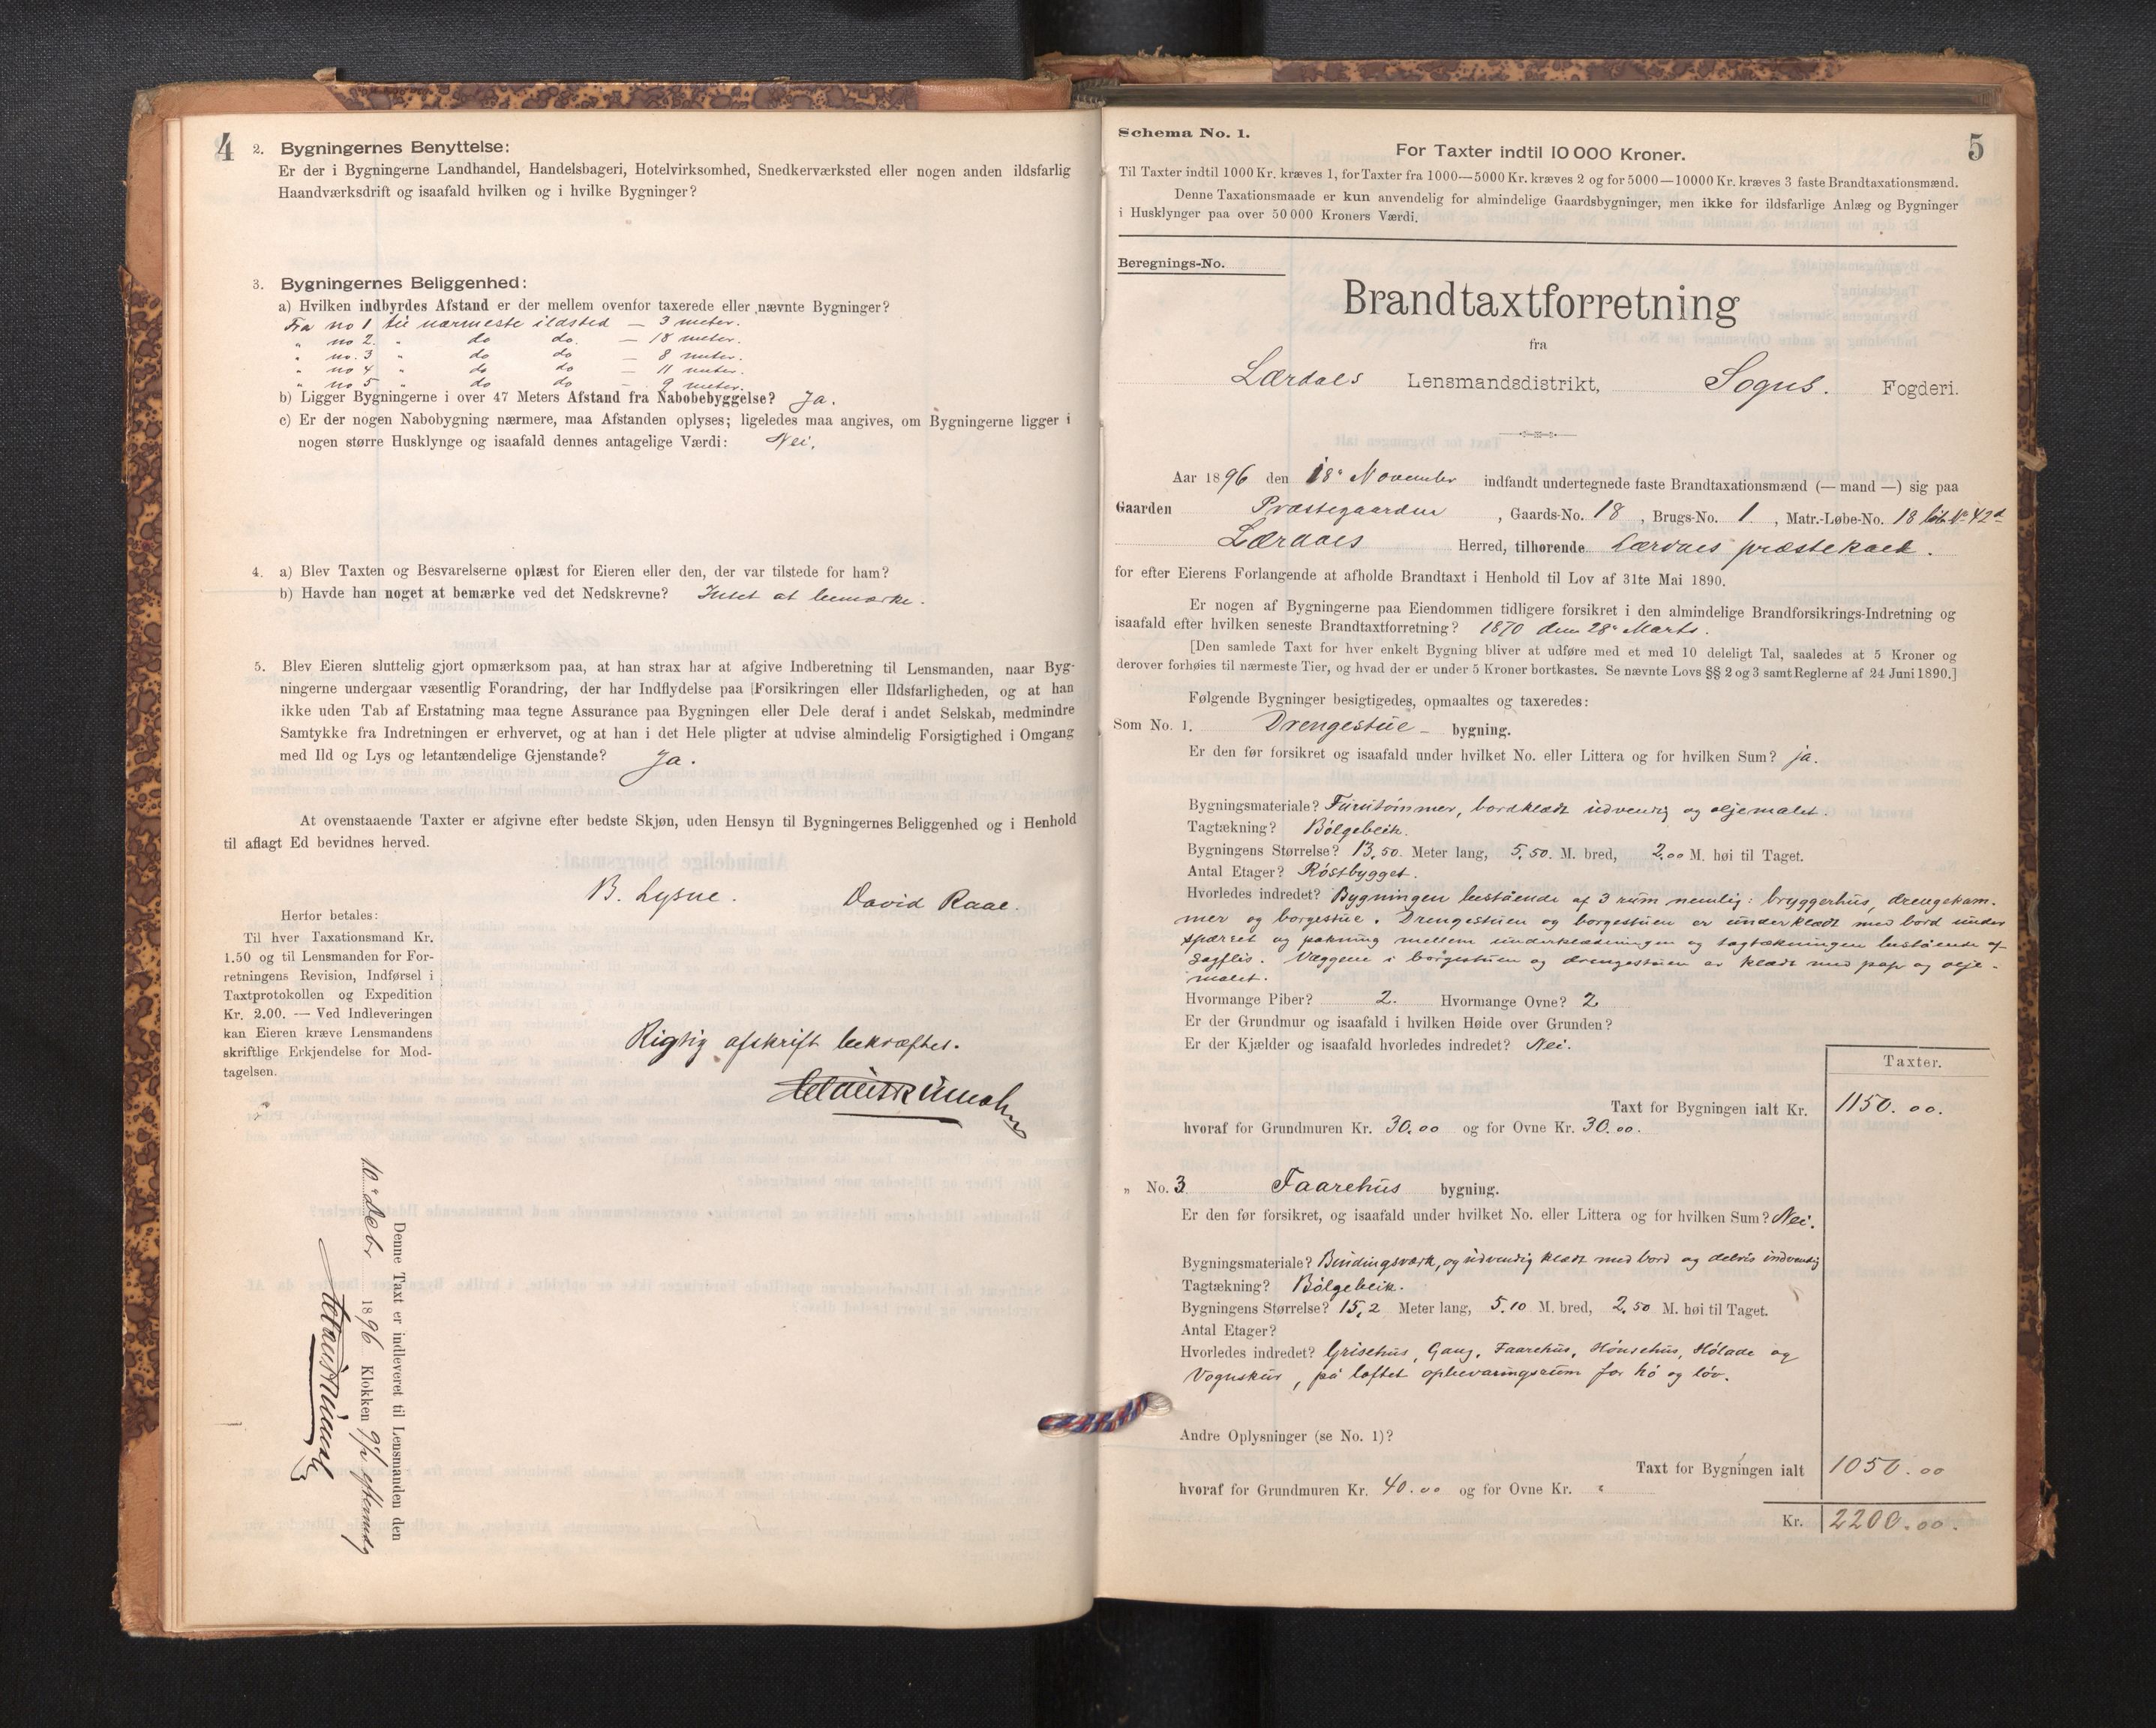 4
2. Bygningernes Benyttelse:
Er der i Bygningerne Landhandel, Handelsbageri, Hotelvirksomhed, Snedkerværksted eller nogen anden ildsfarlig
Haandværksdrift og isaafald hvilken og i hvilke Bygninger?
3. Bygningernes Beliggenhed:
a) Hvilken indbyrdes Afstand er der mellem ovenfor taxerede eller nævnte Bygninger?
Fra no 1 til nærmeste ildsted — 3 meter.
" no 2. " do do. — 18 meter.
" no. 3 " do do — 8 meter.
" no 4 " do do — 11 meter.
" no 5 " do do — 9 meter.
b) Ligger Bygningerne i over 47 Meters Afstand fra Nabobebyggelse? Ja.
c) Er der nogen Nabobygning nærmere, maa Afstanden oplyses; ligeledes maa angives, om Bygningerne ligger i
nogen større Husklynge og isaafald dennes antagelige Værdi: Nei.
4. a) Blev Taxten og Besvarelserne oplæst for Eieren eller den, der var tilstede for ham?
b) Havde han noget at bemærke ved det Nedskrevne? Intet at bemærke.
5. Blev Eieren sluttelig gjort opmærksom paa, at han strax har at afgive Indberetning til Lensmanden, naar Byg-
ningerne undergaar væsentlig Forandring, der har Indflydelse paa [Forsikringen eller Ildsfarligheden, og at han
ikke uden Tab af Erstatning maa tegne Assurance paa Bygningen eller Dele deraf i andet Selskab, medmindre
Samtykke fra Indretningen er erhvervet, og at han i det Hele pligter at udvise almindelig Forsigtighed i Omgang
med Ild og Lys og letantændelige Gjenstande? Ja.
At ovenstaaende Taxter er afgivne efter bedste Skjøn, uden Hensyn til Bygningernes Beliggenhed og i Henhold
til aflagt Ed bevidnes herved.
B. Lysne. David Raae.
Herfor betales:
Til hver Taxationsmand Kr.
1.50 og til Lensmanden for For-
retningens Revision, Indførsel i
Taxtprotokollen og Expedition
Kr. 2.00. — Ved Indleveringen
kan Eieren kræve Lensmandens
skriftlige Erkjendelse for Mod-
tagelsen.
Rigtig afskrift bekræftes.
Denne Taxt er indleveret til Lensmanden den
10de Debr 1896 Klokken 9 eftermdg
5
Schema No. 1.
For Taxter indtil 10 000 Kroner.
Til Taxter indtil 1000 Kr. kræves 1, for Taxter fra 1000—5000 Kr. kræves 2 og for 5000—10000 Kr. kræves 3 faste Brandtaxationsmænd.
Denne Taxationsmaade er kun anvendelig for almindelige Gaardsbygninger, men ikke for ildsfarlige Anlæg og Bygninger
i Husklynger paa over 50 000 Kroners Værdi.
Beregnings-No.
Brandtaxtforretning
fra
Lærdals Lensmandsdistrikt, Sogns. Fogderi.
Aar 1896 den 18de November indfandt undertegnede faste Brandtaxationsmænd (— mand —) sig paa
Gaarden Præstegaarden, Gaards-No. 18, Brugs-No. 1., Matr.-Løbe-No. 18 løb. No 42d
Lærdals Herred, tilhørende Lærdals præstekald.
for efter Eierens Forlangende at afholde Brandtaxt i Henhold til Lov af 31te Mai 1890.
Er nogen af Bygningerne paa Eiendommen tidligere forsikret i den almindelige Brandforsikrings-Indretning og
isaafald efter hvilken seneste Brandtaxtforretning? 1870 den 28de Marts.
[Den samlede Taxt for hver enkelt Bygning bliver at udføre med et med 10 deleligt Tal, saaledes at 5 Kroner og
derover forhøies til nærmeste Tier, og hvad der er under 5 Kroner bortkastes. Se nævnte Lovs §§ 2 og 3 samt Reglerne af 24 Juni 1890.]
Følgende Bygninger besigtigedes, opmaaltes og taxeredes:
Som No. 1. Drengestue — bygning.
Er den før forsikret og isaafald under hvilket No. eller Littera og for hvilken Sum? ja.
Bygningsmateriale? Furutømmer, bordklædt udvendig og oljemalet.
Tagtækning? Bølgeblik.
Bygningens Størrelse? 13,50. Meter lang, 5,50. M. bred, 2.00 M. høi til Taget.
Antal Etager? Røstbygget.
Hvorledes indredet? Bygningen bestående af 3 rum nemlig: bryggerhus, drengekam-
mer og borgestue. Drengestuen og borgestuen er underklædt med bord under
spærret og pakning mellem underklædningen og tagtækningen bestående af
sagflis. Væggene i borgestuen og drengestuen er klædt med pap og olje-
malet.
Hvormange Piber? 2. Hvormange Ovne? 2
Er der Grundmur og isaafald i hvilken Høide over Grunden?
Er der Kjælder og isaafald hvorledes indredet? Nei.
Taxter.
Taxt for Bygningen ialt Kr. 1150.00.
hvoraf for Grundmuren Kr. 30.00 og for Ovne Kr. 30.00.
" No. 3 Faarehus bygning.
Er den før forsikret, og isaafald under hvilket No. eller Littera og for hvilken Sum? Nei.
Bygningsmateriale? Bindingsværk, og udvendig klædt med bord og delvis indvendig
Tagtækning? Bølgeblik.
Bygningens Størrelse? 15,2 Meter lang, 5.10 M. bred, 2.50 M. høi til Taget.
Antal Etager?
Hvorledes indredet? Grisehus, Gang, Faarehus, Hønsehus, Hølade og
Vognskur, på loftet opbevaringsrum for hø og løv.
Andre Oplysninger (se No. 1)?
Taxt for Bygningen ialt 1050.00
hvoraf for Grundmuren Kr. 40.00 og for Ovne Kr. "
Kr. 2200.00.